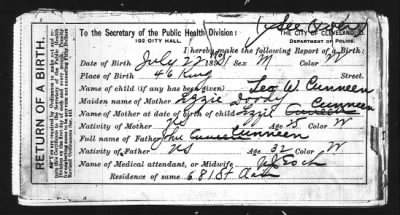 (See Above)
To the Secretary of the Public Health Division: THE CITY OF CLEVELAND, O.
103 CITY HALL. DEPARTMENT OF POLICE.
I hereby make the following Report of a Birth:
Date of Birth July 22 Sex M Color W
Place of Birth 46 King Street.
Name of child (if any has been given) Leo W. Cunneen
Maiden name of Mother Lizzie Doody
Name of Mother at date of birth of child Lizzie Cunneen
Nativity of Mother Age 25 Color W
Full name of Father Cunneen
Nativity of Father US Age 32 Color W
Name of Medical attendant, or Midwife
Residence of same 681 St Clair
RETURN OF A BIRTH.